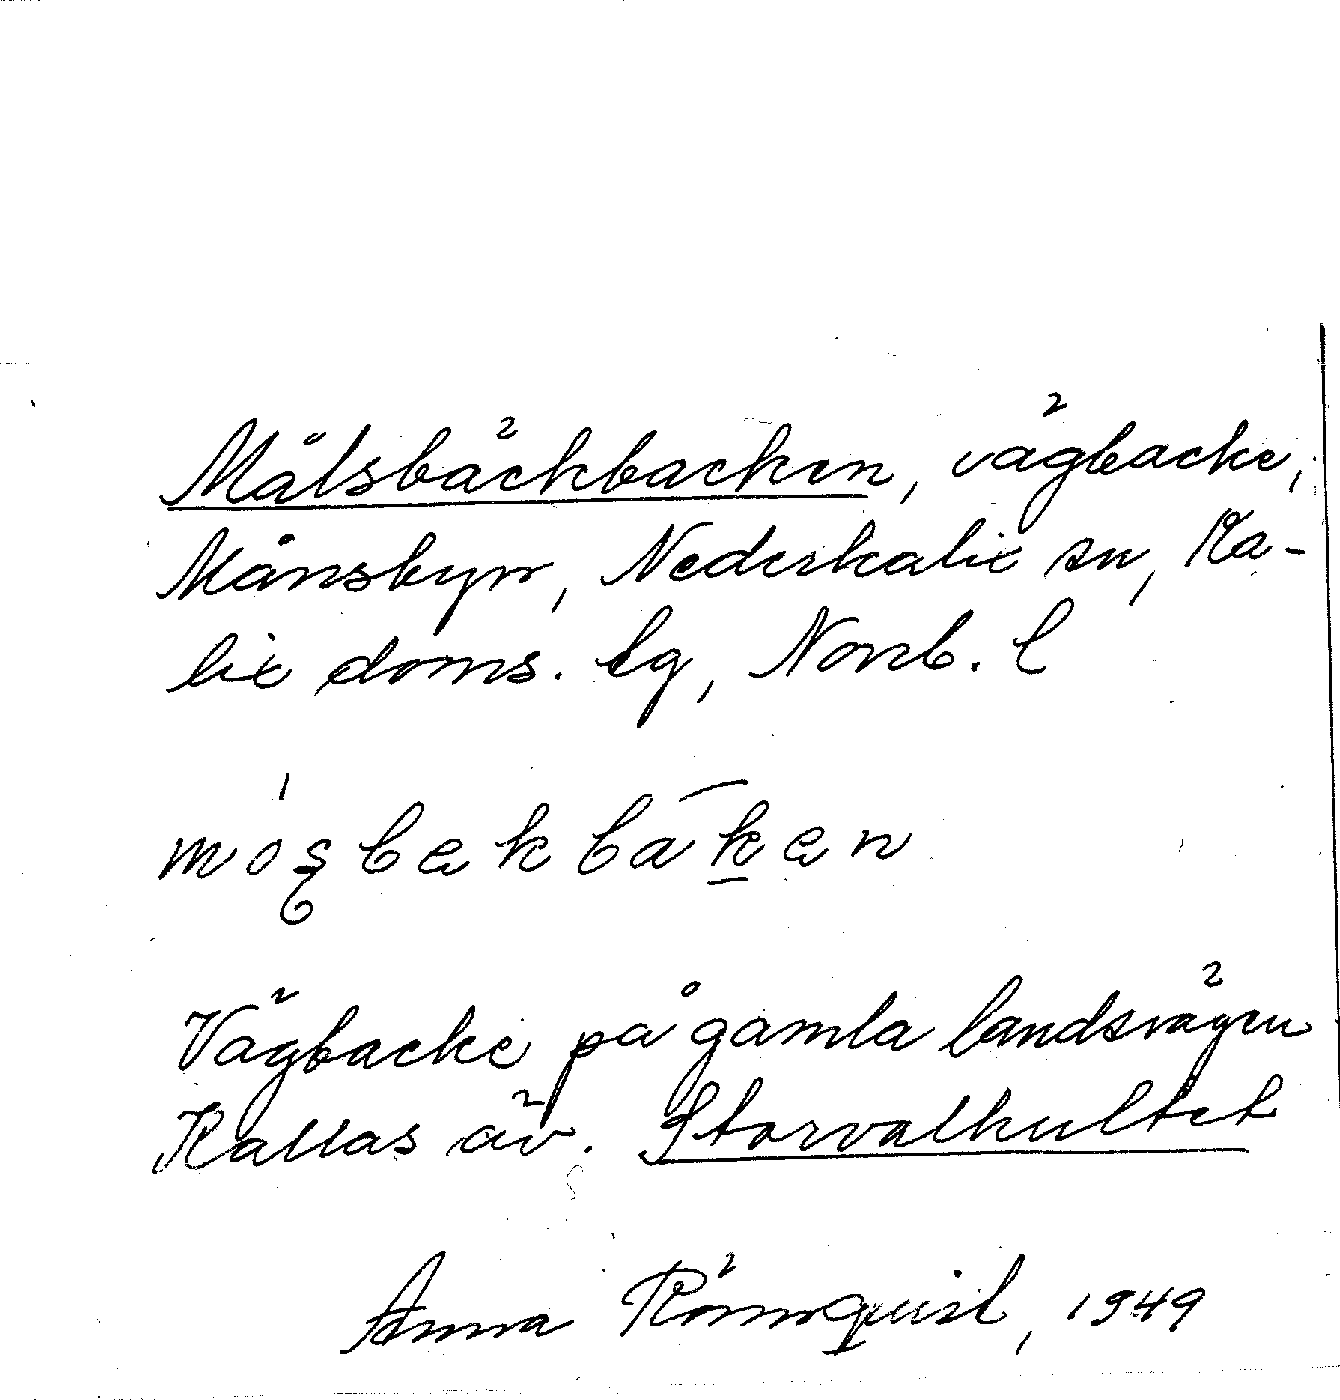 Målsbäckbacken, vägbacke,
Månsbyn, Nederkalix sn, Ka-
lix doms. tg, Norrb. l
Vägbacke på gamla landsvägen
Kallas äv. Storvalkultet
Anna Rönnquist, 1949